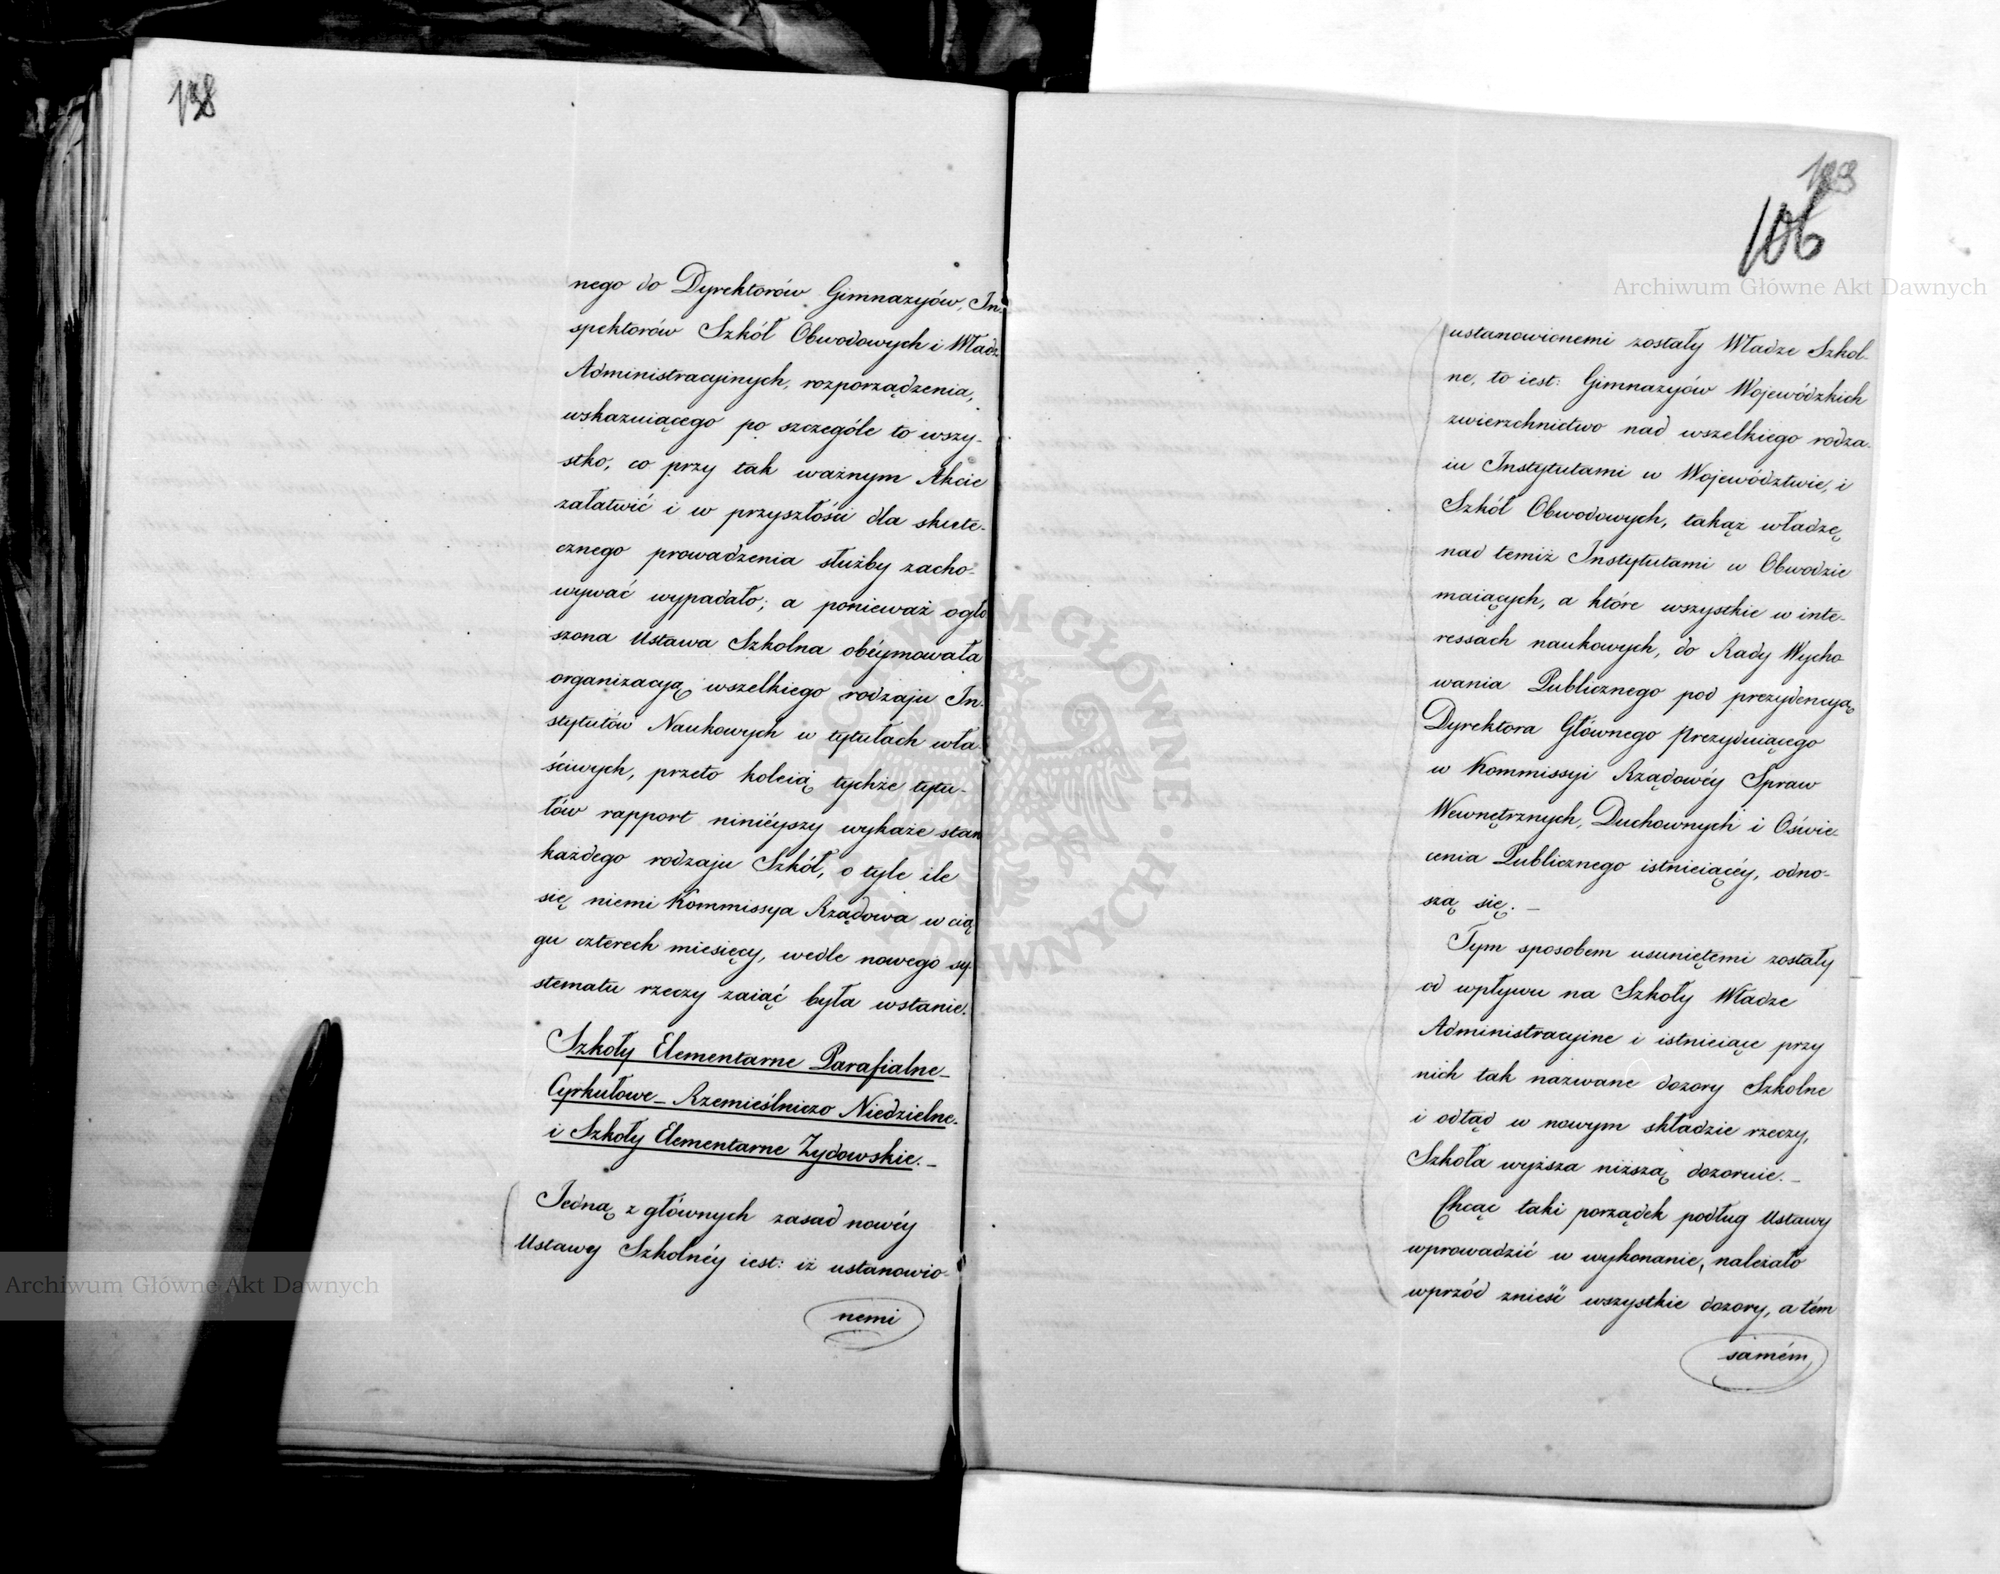 198
nego do Dyrektorów Gimnazyów, In-
spektorów Szkół Obwodowych i Władz
Administracyinych, rozporządzenia,
wskazuiącego po szczególe to wszy-
stko, co przy tak ważnym Akcie
załatwić i w przyszłości dla skute-
cznego prowadzenia służby zacho-
wywać wypadało; a ponieważ ogło
szona Ustawa Szkolna obéymowała
organizacyą wszelkiego rodzaju In-
stytutów Naukowych w tytułach wła-
ściwych, przeto koleią tychże tytu-
łów rapport ninieyszy wykaże stan
każdego rodzaju Szkół, o tyle ile
się niemi Kommissya Rządowa w cią
gu czterech miesięcy, wedle nowego sy-
stematu rzeczy zaiąć była wstanie.
Szkoły Elementarne Parafialne_
Cyrkułowe_ Rzemieślniczo Niedzielne.
i Szkoły Elementarne Żydowskie._
Jedną z głównych zasad nowéy
Ustawy Szkolnéy iest: iż ustanowio-
nemi
199
106
ustanowionemi zostały Władze Szkol-
ne, to iest: Gimnazyów Wojewódzkich
zwierzchnictwo nad wszelkiego rodza-
iu Instytutami w Województwie, i
Szkół Obwodowych, takąż władzę
nad temiż Instytutami w Obwodzie
maiących, a które wszystkie w inte-
ressach naukowych, do Rady Wycho
wania Publicznego pod prezydencyą
Dyrektora Głównego prezyduiącego
w Kommissyi Rządowéy Spraw
Wewnętrznych, Duchownych i Oświe-
cenia Publicznego istnieiącéy, odno-
szą się._
Tym sposobem usuniętemi zostały
od wpływu na Szkoły Władze
Administracyine i istnieiące przy
nich tak nazwane dozory Szkolne
i odtąd w nowym składzie rzeczy,
Szkoła wyższa niższą dozoruie._
Chcąc taki porządek podług Ustawy
wprowadzić w wykonanie, należało
wprzód znieść wszystkie dozory, a tém
samém
Archiwum Główne Akt Dawnych
Archiwum Główne Akt Dawnych